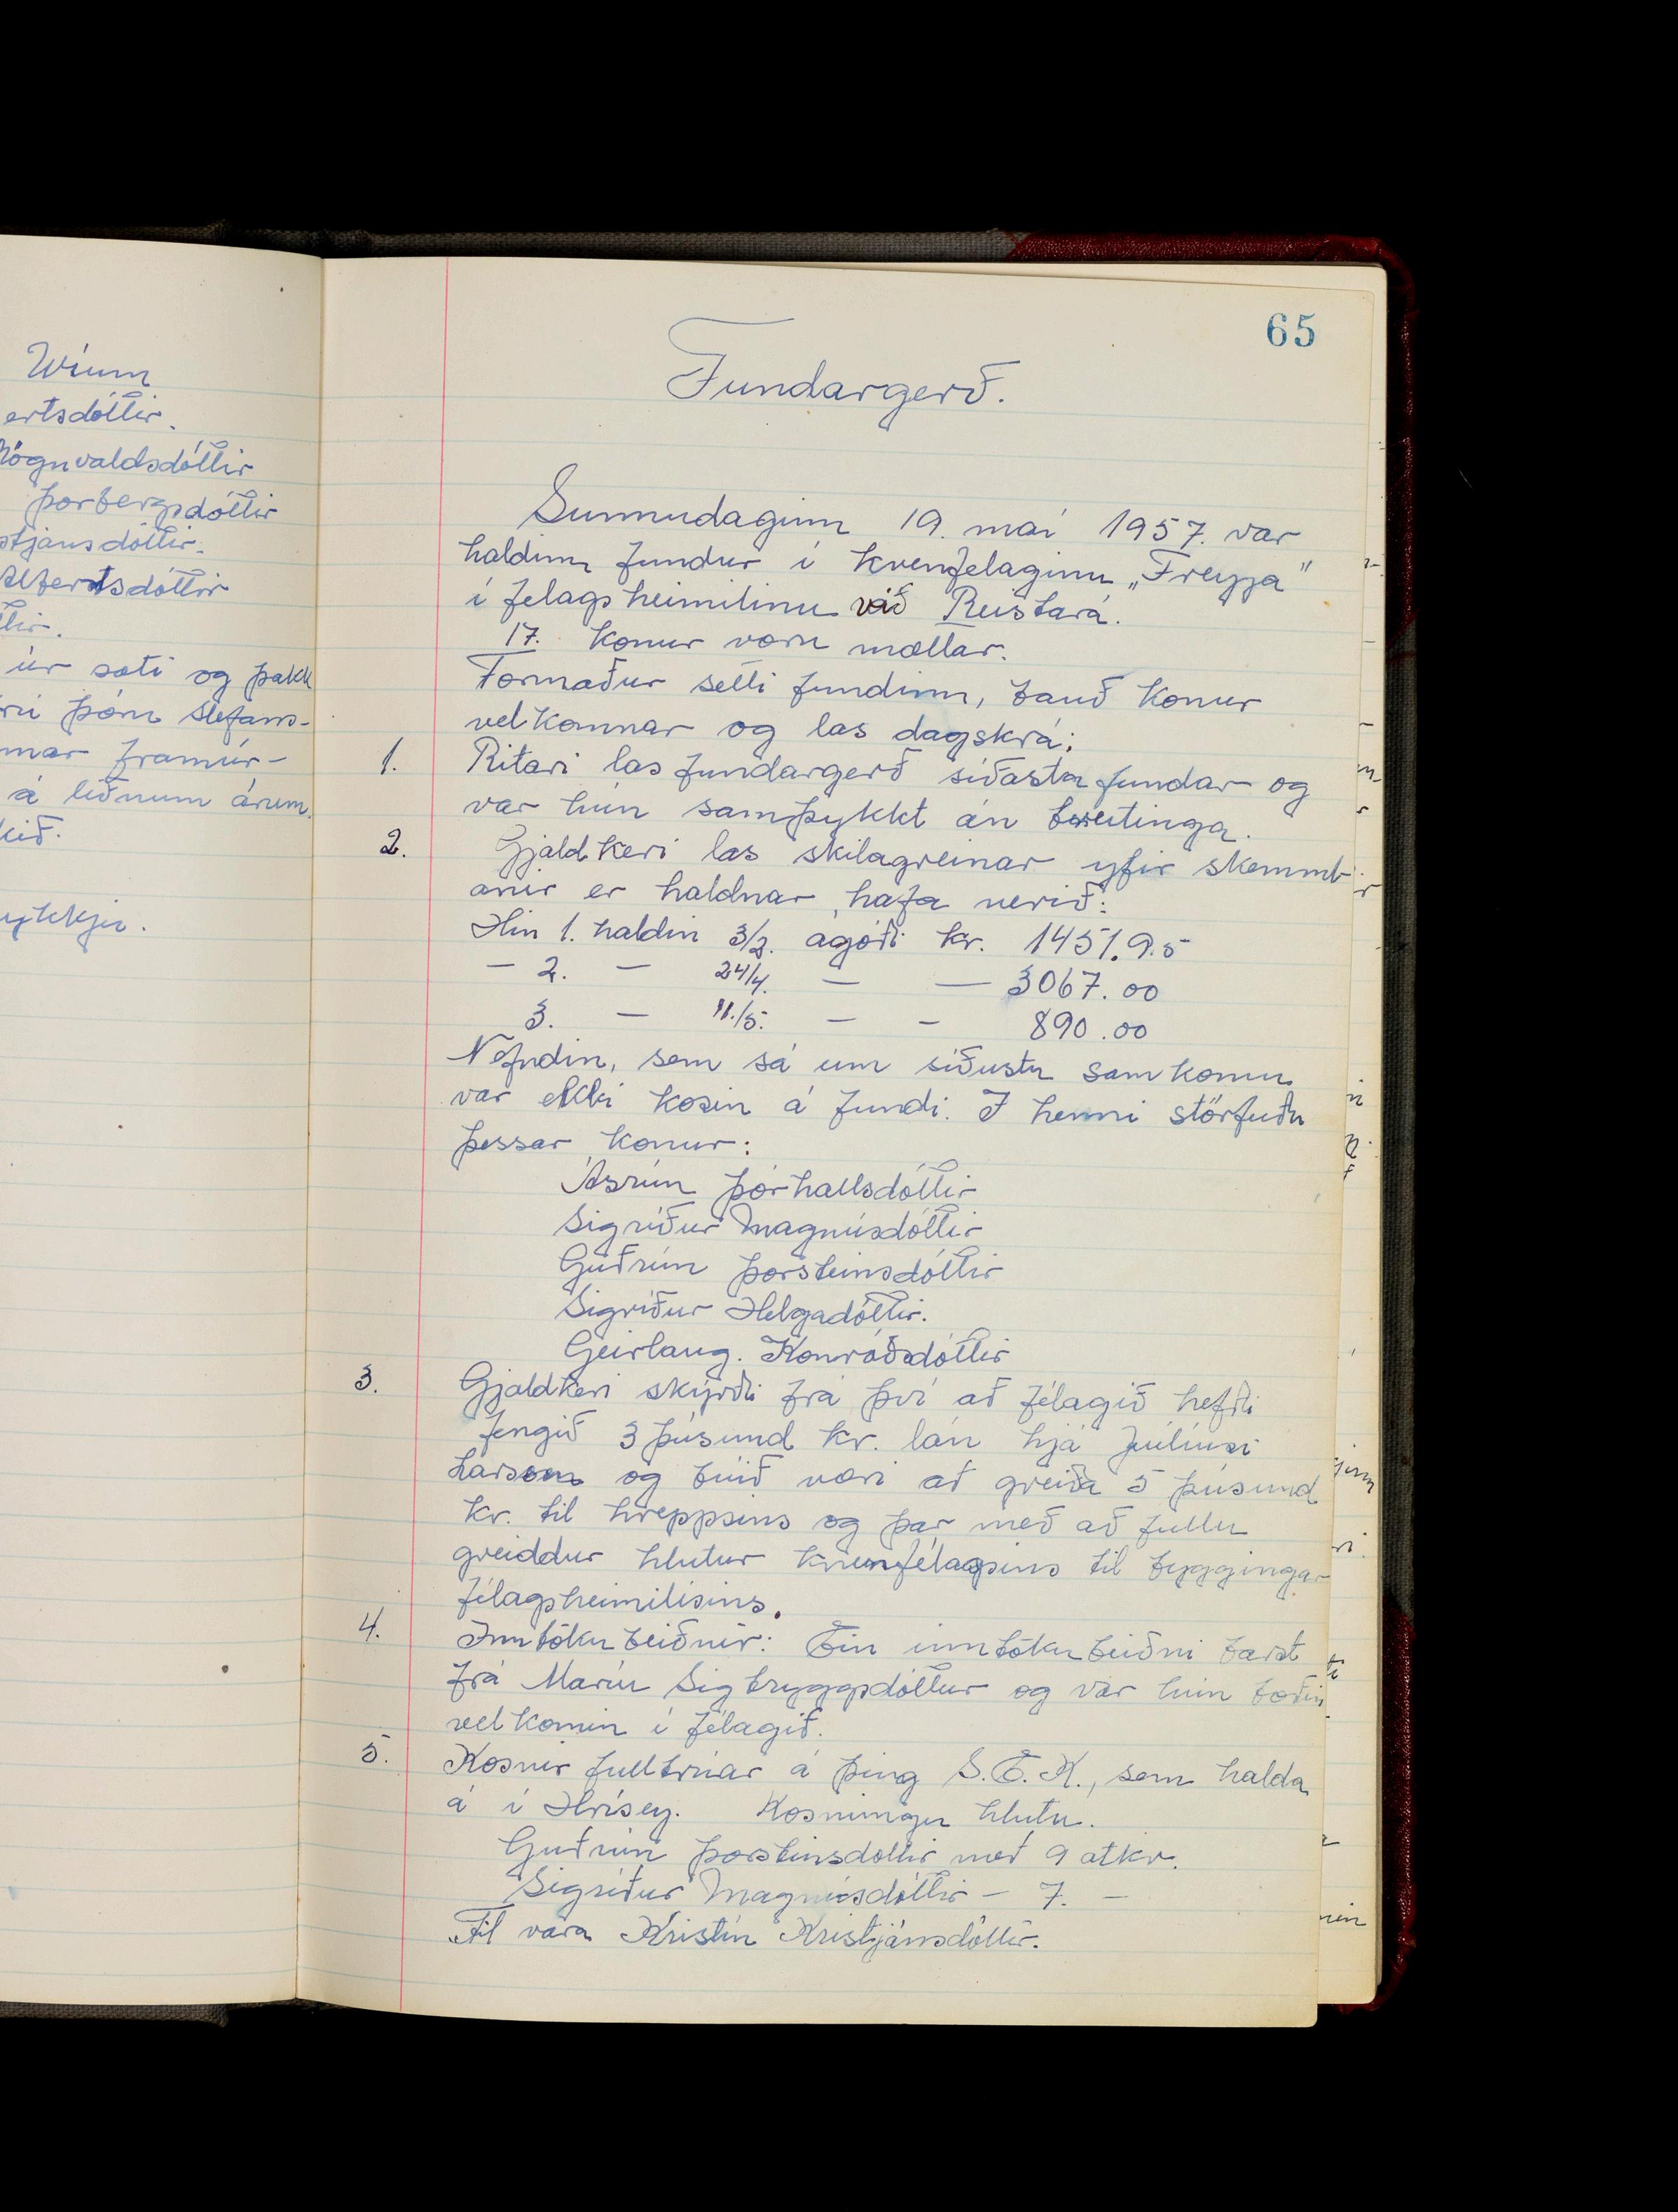 Wíum
ertsdóttir.
Rögnvaldsdóttir
Þorbergsdóttir
stjánsdóttir.
Albertsdóttir
tir.
úr sæti og þakk
rú Þóru Stefáns-
nnar framúr-
á liðnum árum.
kið.
ykkju.
65
Fundargerð.
Sunnudaginn 19. maí 1957. var
haldinn fundur í kvenfélaginu „Freyja"
í félagsheimilinu við Reistará.
17. konur voru mættar.
Formaður setti fundinn, bauð konur
velkomnar og las dagskrá:
1. Ritari las fundargerð síðasta fundar og
var hún samþykkt án breitinga.
2. Gjaldkeri las skilagreinar yfir skemmt-
anir er haldnar hafa verið:
Hin 1. haldin 3/2. ágóði kr. 1451.95
— 2. — 24/4. — — 3067.00
3. — 11./5. — — 890.00
Nefndin, sem sá um síðustu samkomu
var ekki kosin á fundi. I henni störfuðu
þessar konur:
Ásrún Þórhallsdóttir
Sigríður Magnúsdóttir
Guðrún Þorsteinsdóttir
Sigríður Helgadóttir.
Geirlaug. Konráðsdóttir
3. Gjaldkeri skýrði frá því að félagið hefði
fengið 3 þúsund kr. lán hjá Júlíusi
Larsen og búið væri að greiða 5 þúsund
kr. til hreppsins og þar með að fullu
greiddur hlutur kvenfélagsins til byggingar
félagsheimilisins.
4. Inntökubeiðnir: Ein inntökubeiðni barst
frá Maríu Sigtryggsdóttur og var hún boðin
velkomin í félagið.
5. Kosnir fulltrúar á þing S.E.K., sem halda
á í Hrísey. Kosningu hlutu.
Guðrún Þorsteinsdóttir með 9 atkv.
Sigríður Magnúsdóttir — 7. —
Til vara Kristín Kristjánsdóttir.